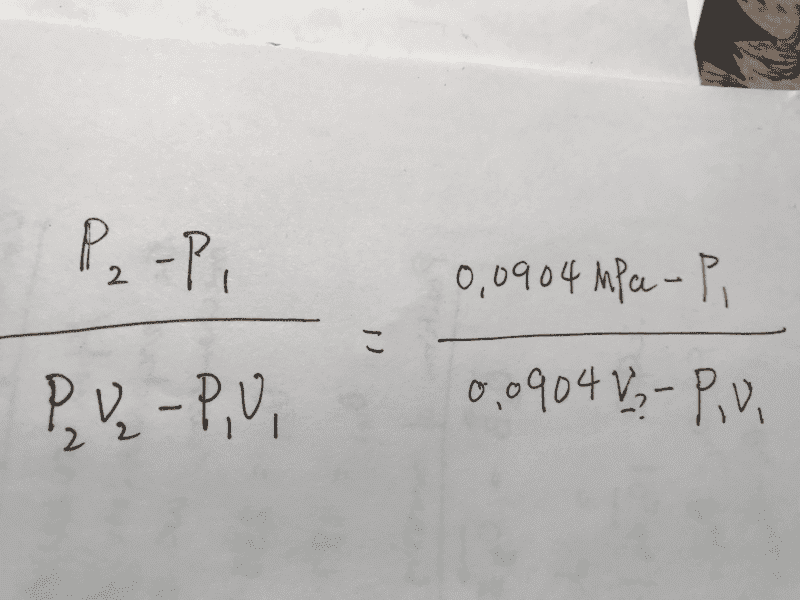 P₂ - P₁ / P₂V₂ - P₁V₁ = 0,0904 MPa - P₁ / 0,0904 V₂ - P₁V₁